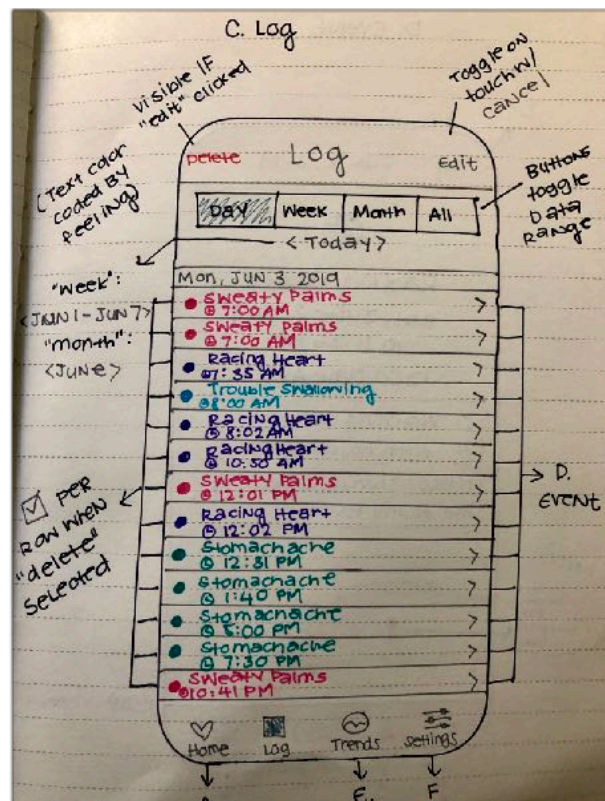 C. Log
visible IF
"edit" clicked
Toggle on
touch w/
cancel
(Text color
coded by
feeling)
Delete
Log
Edit
Buttons
toggle
Data
Range
Day Week Month All
< Today >
"week":
<JUN 1 - JUN 7>
"month":
<JUNe>
Mon, JUN 3 2019
Sweaty Palms
7:00 AM
Sweaty Palms
7:00 AM
Racing Heart
7:35 AM
Trouble Swallowing
8:00 AM
Racing Heart
8:02 AM
Racing Heart
10:30 AM
Sweaty Palms
12:01 PM
Racing Heart
12:02 PM
Stomachache
12:31 PM
Stomachache
1:40 PM
Stomachache
5:00 PM
Stomachache
7:30 PM
Sweaty Palms
10:41 PM
D.
EVENT
PER
ROW WHEN
"delete"
selected
Home Log Trends Settings
E. F